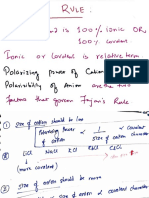 RULE :
is 100% ionic OR
100% covalent
Ionic or Covalent is relative term
Polarizing power of Cation
Polarisibility of Anion are the two
factors that govern Fajan's Rule
① size of cation should be low
Polarising Power of cation ∝ 1/size of cation ∝ covalent character
LiCl NaCl KCl RbCl CsCl
(more covalent)
② size of anion should be more
size of anion ∝ covalent character